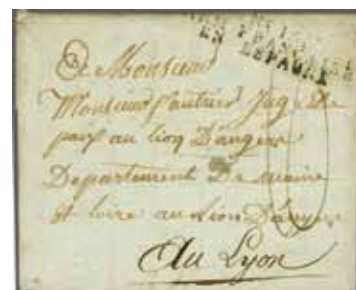 ARM FRANÇAISE
EN ESPAGNE
A Monsieur
Monsieur Juge De
paix au lion D'angers
Departement De maine
et loire au Lion D'angers
Au Lyon